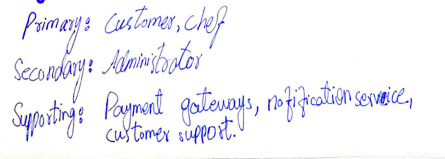 Primary: Customer, Chef
Secondary: Administrator
Supporting: Payment gateways, notification service,
customer support.